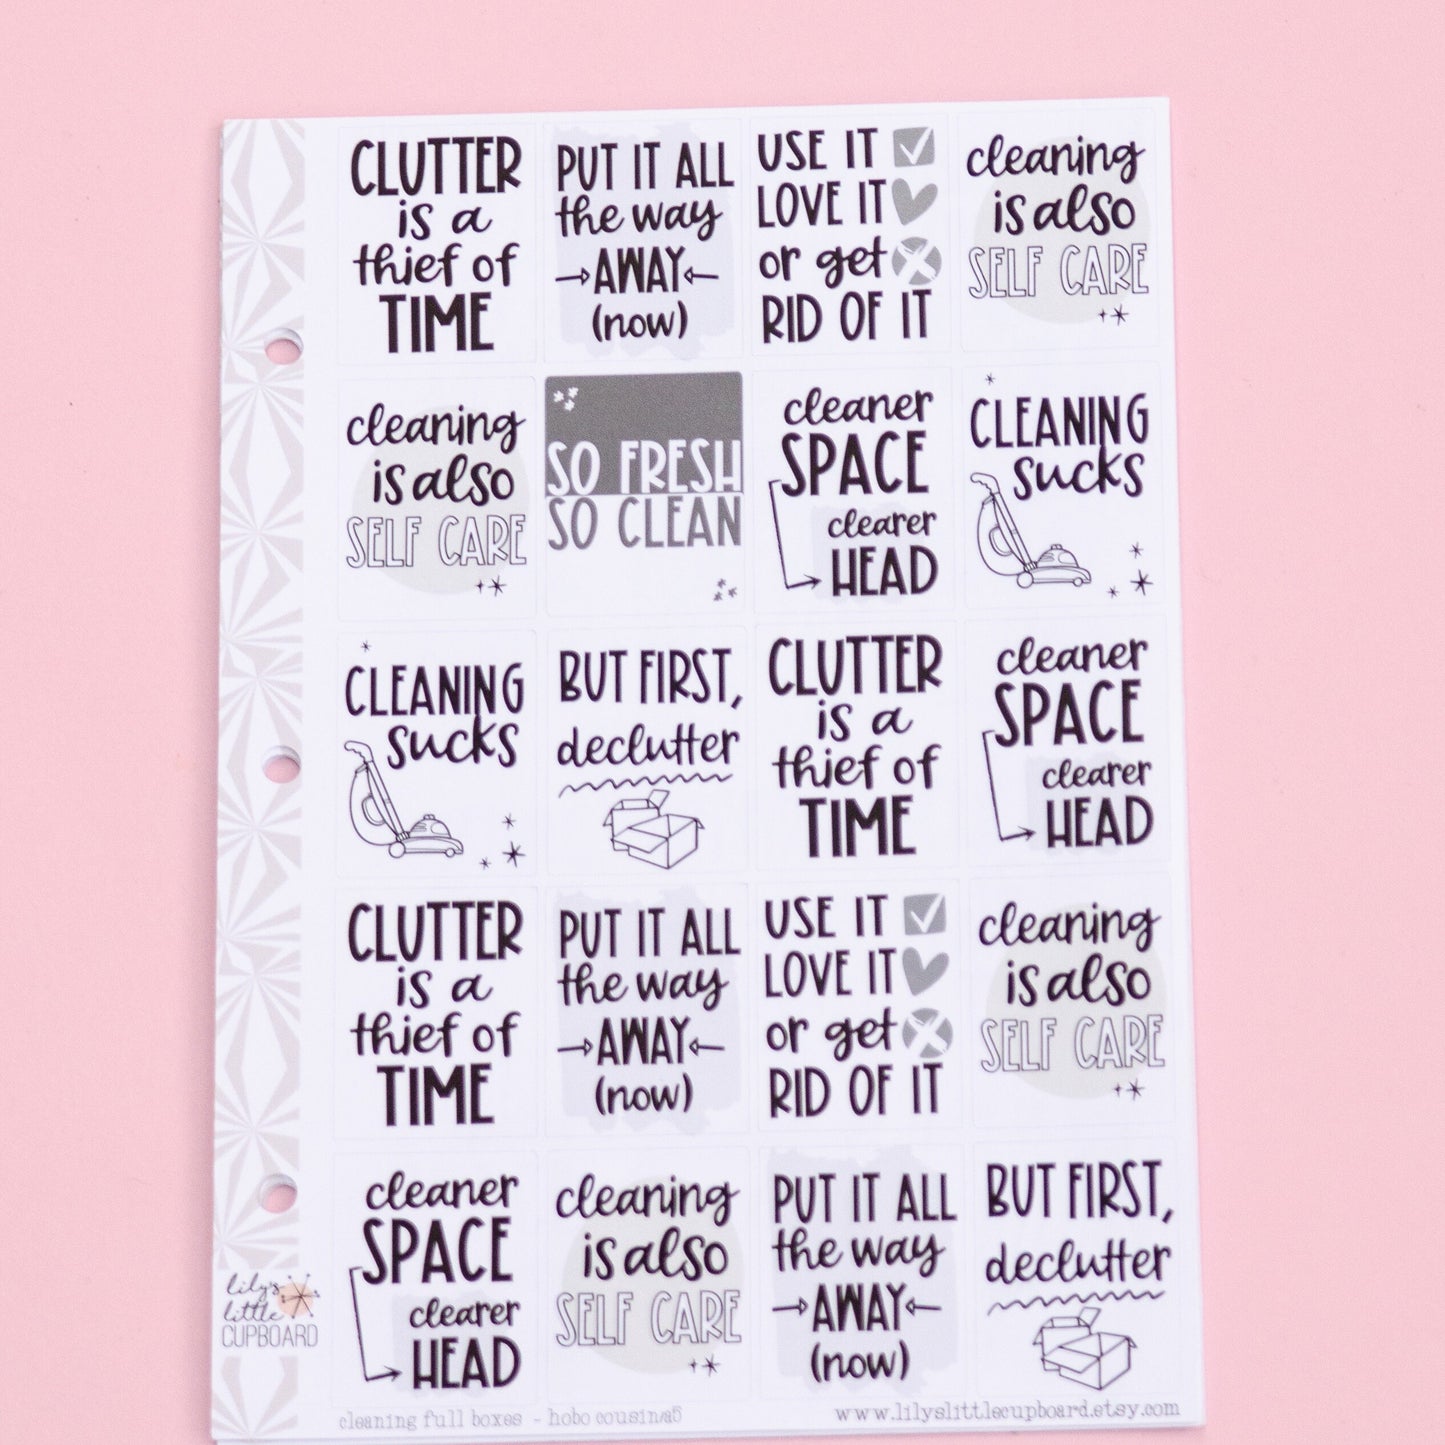 CLUTTER
is a
thief of
TIME
PUT IT ALL
the way
AWAY
(now)
USE IT
LOVE IT
or get
RID OF IT
cleaning
is also
SELF CARE
cleaning
is also
SELF CARE
SO FRESH
SO CLEAN
cleaner
SPACE
clearer
HEAD
CLEANING
sucks
CLEANING
sucks
BUT FIRST,
declutter
CLUTTER
is a
thief of
TIME
cleaner
SPACE
clearer
HEAD
CLUTTER
is a
thief of
TIME
PUT IT ALL
the way
AWAY
(now)
USE IT
LOVE IT
or get
RID OF IT
cleaning
is also
SELF CARE
cleaner
SPACE
clearer
HEAD
cleaning
is also
SELF CARE
PUT IT ALL
the way
AWAY
(now)
BUT FIRST,
declutter
lily's
little
CUPBOARD
cleaning full boxes - hobo cousin/a5
www.lilyslittlecupboard.etsy.com